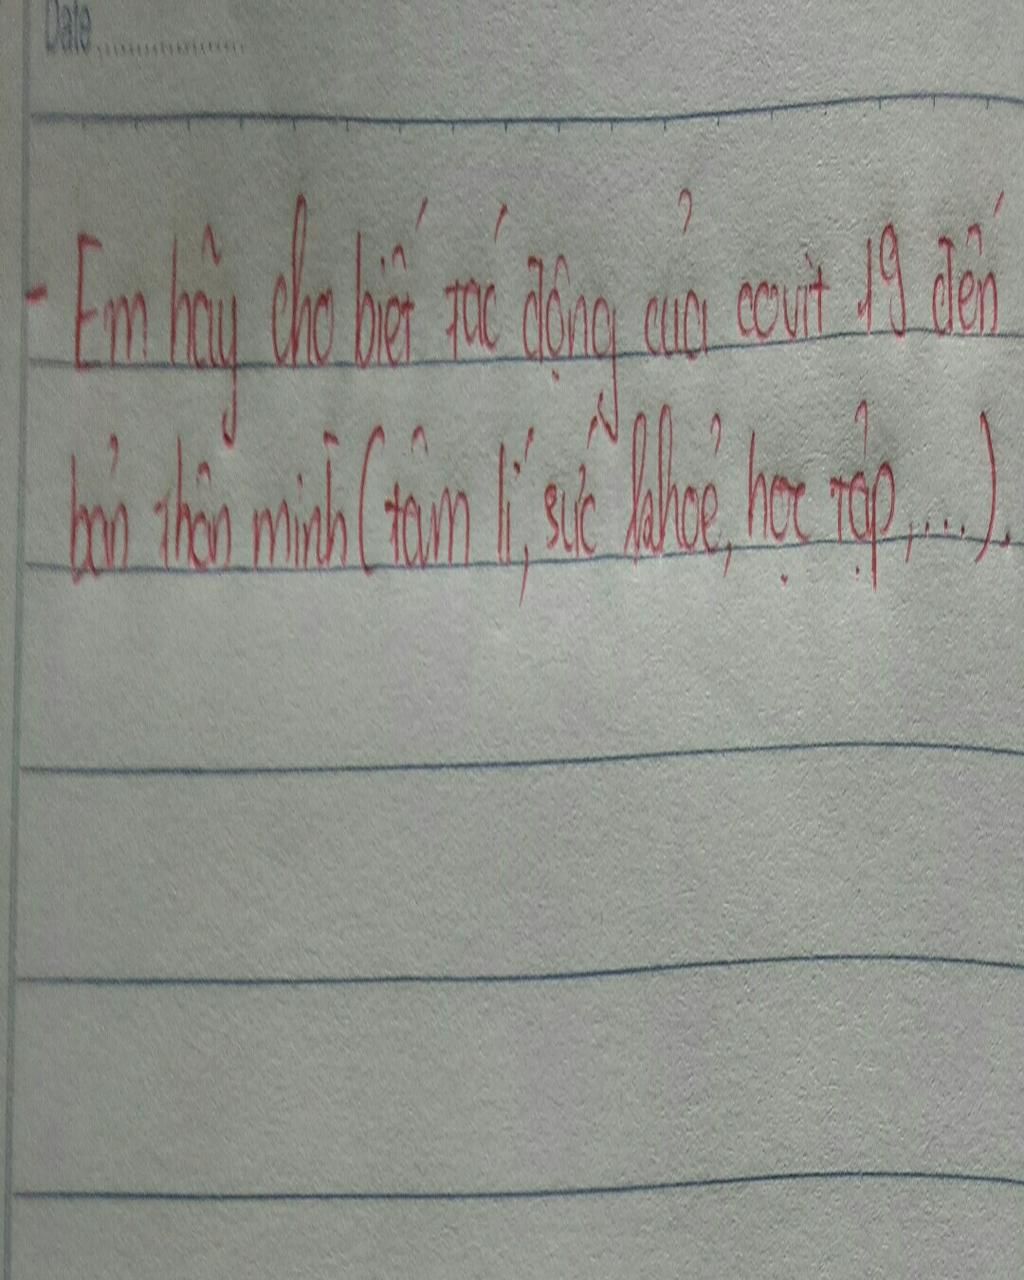 Date
- Em hãy cho biết tác động của covit 19 đến
bản thân mình (tâm lí, sức khoẻ, học tập,....).